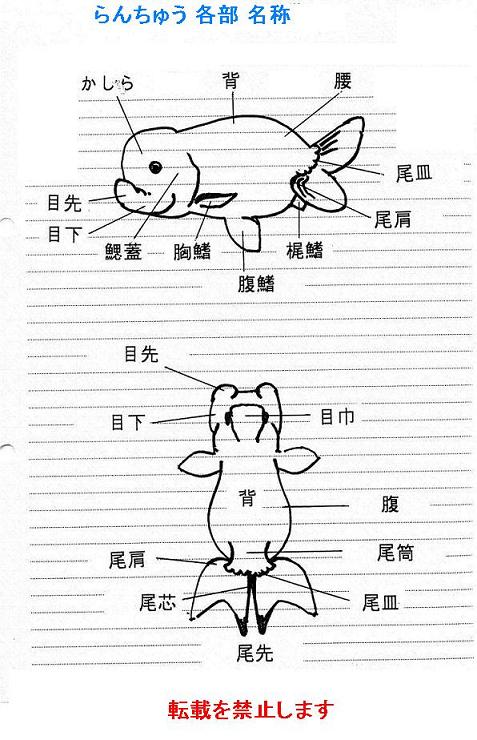 らんちゅう 各部 名称
かしら
背
腰
尾皿
目先
尾肩
目下
鰓蓋
胸鰭
梶鰭
腹鰭
目先
目下
目巾
背
腹
尾肩
尾筒
尾芯
尾皿
尾先
転載を禁止します